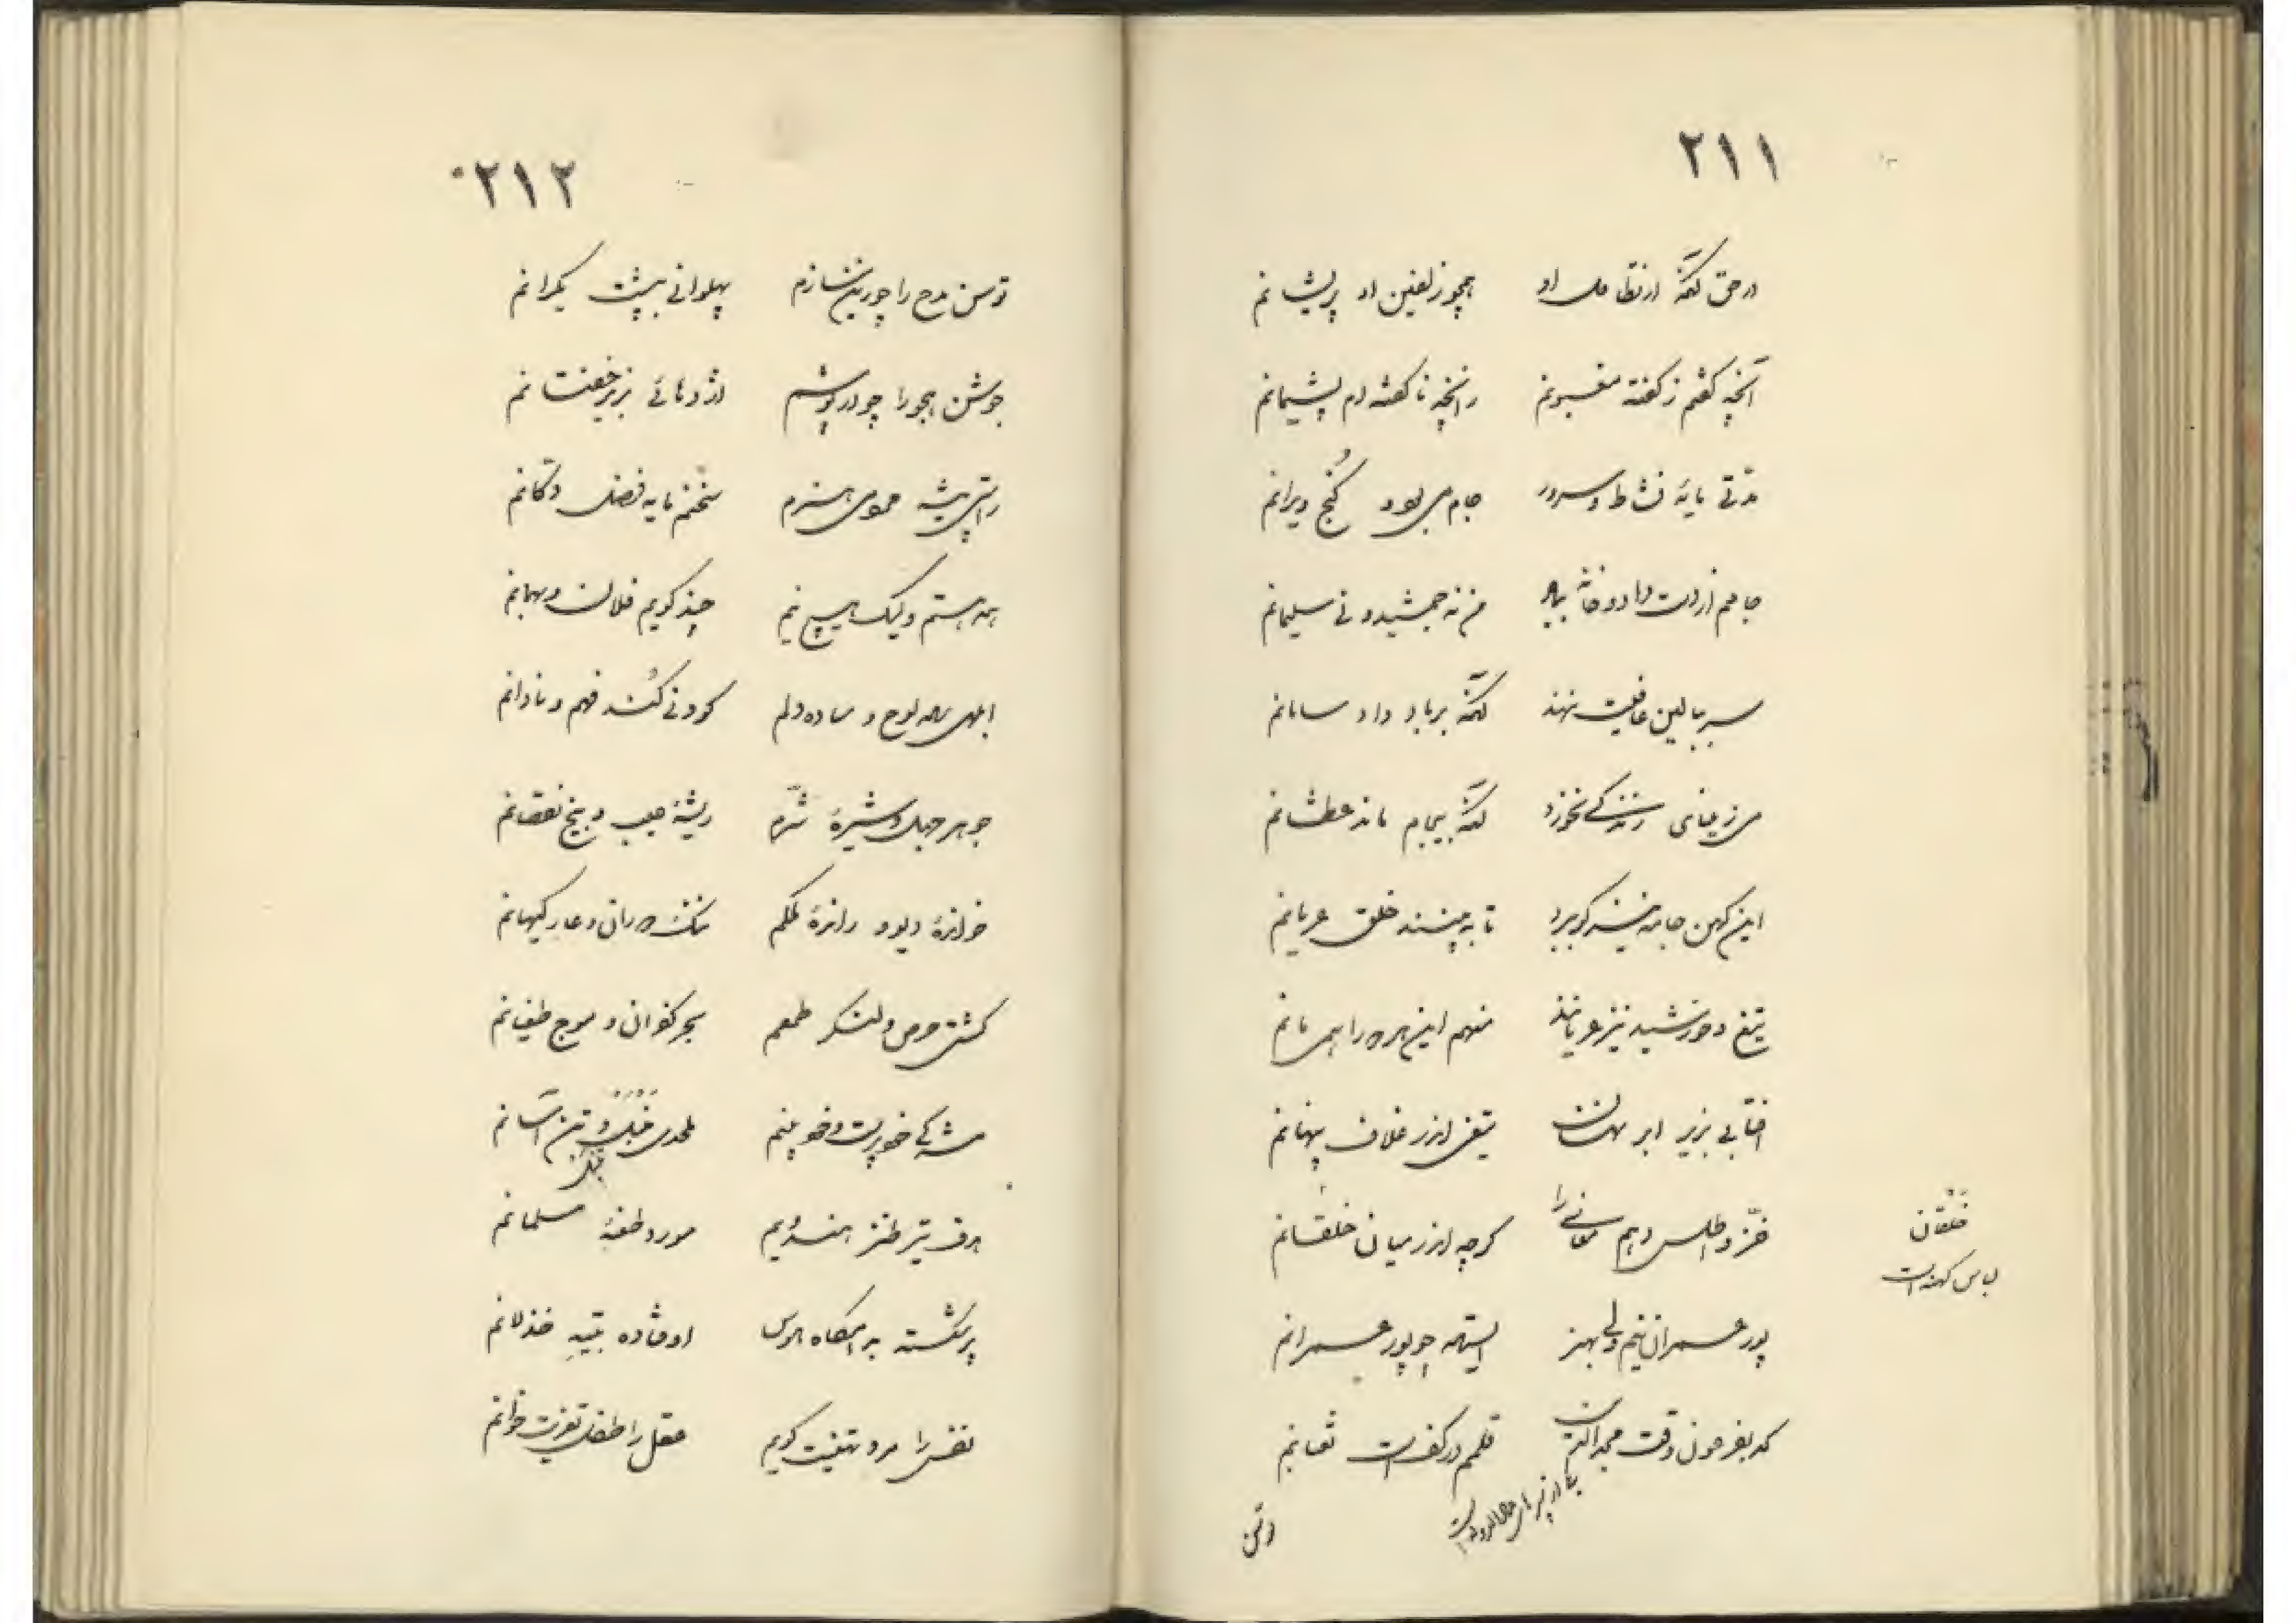 ۲۱۱
در حق لکنه از تطاول او همچو زلفین او پریشانم
آنچه گفتم ز گفته مغبونم زانچه ناگفته‌ام پشیمانم
مدتی مایهٔ نشاط و سرور جام می بود و کنج ویرانم
جامم از دست داد و خانه بباد من نه جمشید و نی سلیمانم
سر ببالین عافیت ننهند لکنه بر باد داد سامانم
می ز مینای زندگی نخورد لکنه بیجام ماند عطشانم
این کهن جامه نیز کو ببرد تا ببینند خلق عریانم
تیغ و خورشید نیز عریانند منهم این هر دو را همی مانم
آفتابی بزیر ابر نهان تیغی اندر غلاف پنهانم
خز و اطلس دهم معانی را گرچه اندر میان خلقانم
خلقان
لباس کهنه است
پور عمران نیم ولی بهنر ایستاده چو پور عمرانم
که بفرعون وقت مجدالدین قلمم در کف است ثعبانم
توسن مدح را چو زین سازم پهلوانی به پشت یکرانم
۲۱۲
جوشن هجو را چو در پوشم اژدهائی بزیر خفتانم
راستی پیشه هنرم سخنم مایه فضل دکانم
همه هستم ولیک هیچ نیم چند گویم فلان و بهمانم
ابلهی ساده لوح و ساده دلم کودنی کند فهم و نادانم
جوهر جهل و شیرهٔ شرم ریشهٔ عیب و بیخ نقصانم
خواندهٔ دیو و راندهٔ ملکم ننگ دوران و عار کیهانم
کشتی حرص و لنگر طمعم بحر کفران و موج طغیانم
مشرکی خودپرست و خودبینم ملحدی تنبل و تن آسانم
هدف تیر طنز هندویم مورد طعنهٔ مسلمانم
پی گسسته بدامگاه هوس اوفتاده بتیه خذلانم
نفس را مرد تهنیت گویم عقل را طفل تعزیت خوانم